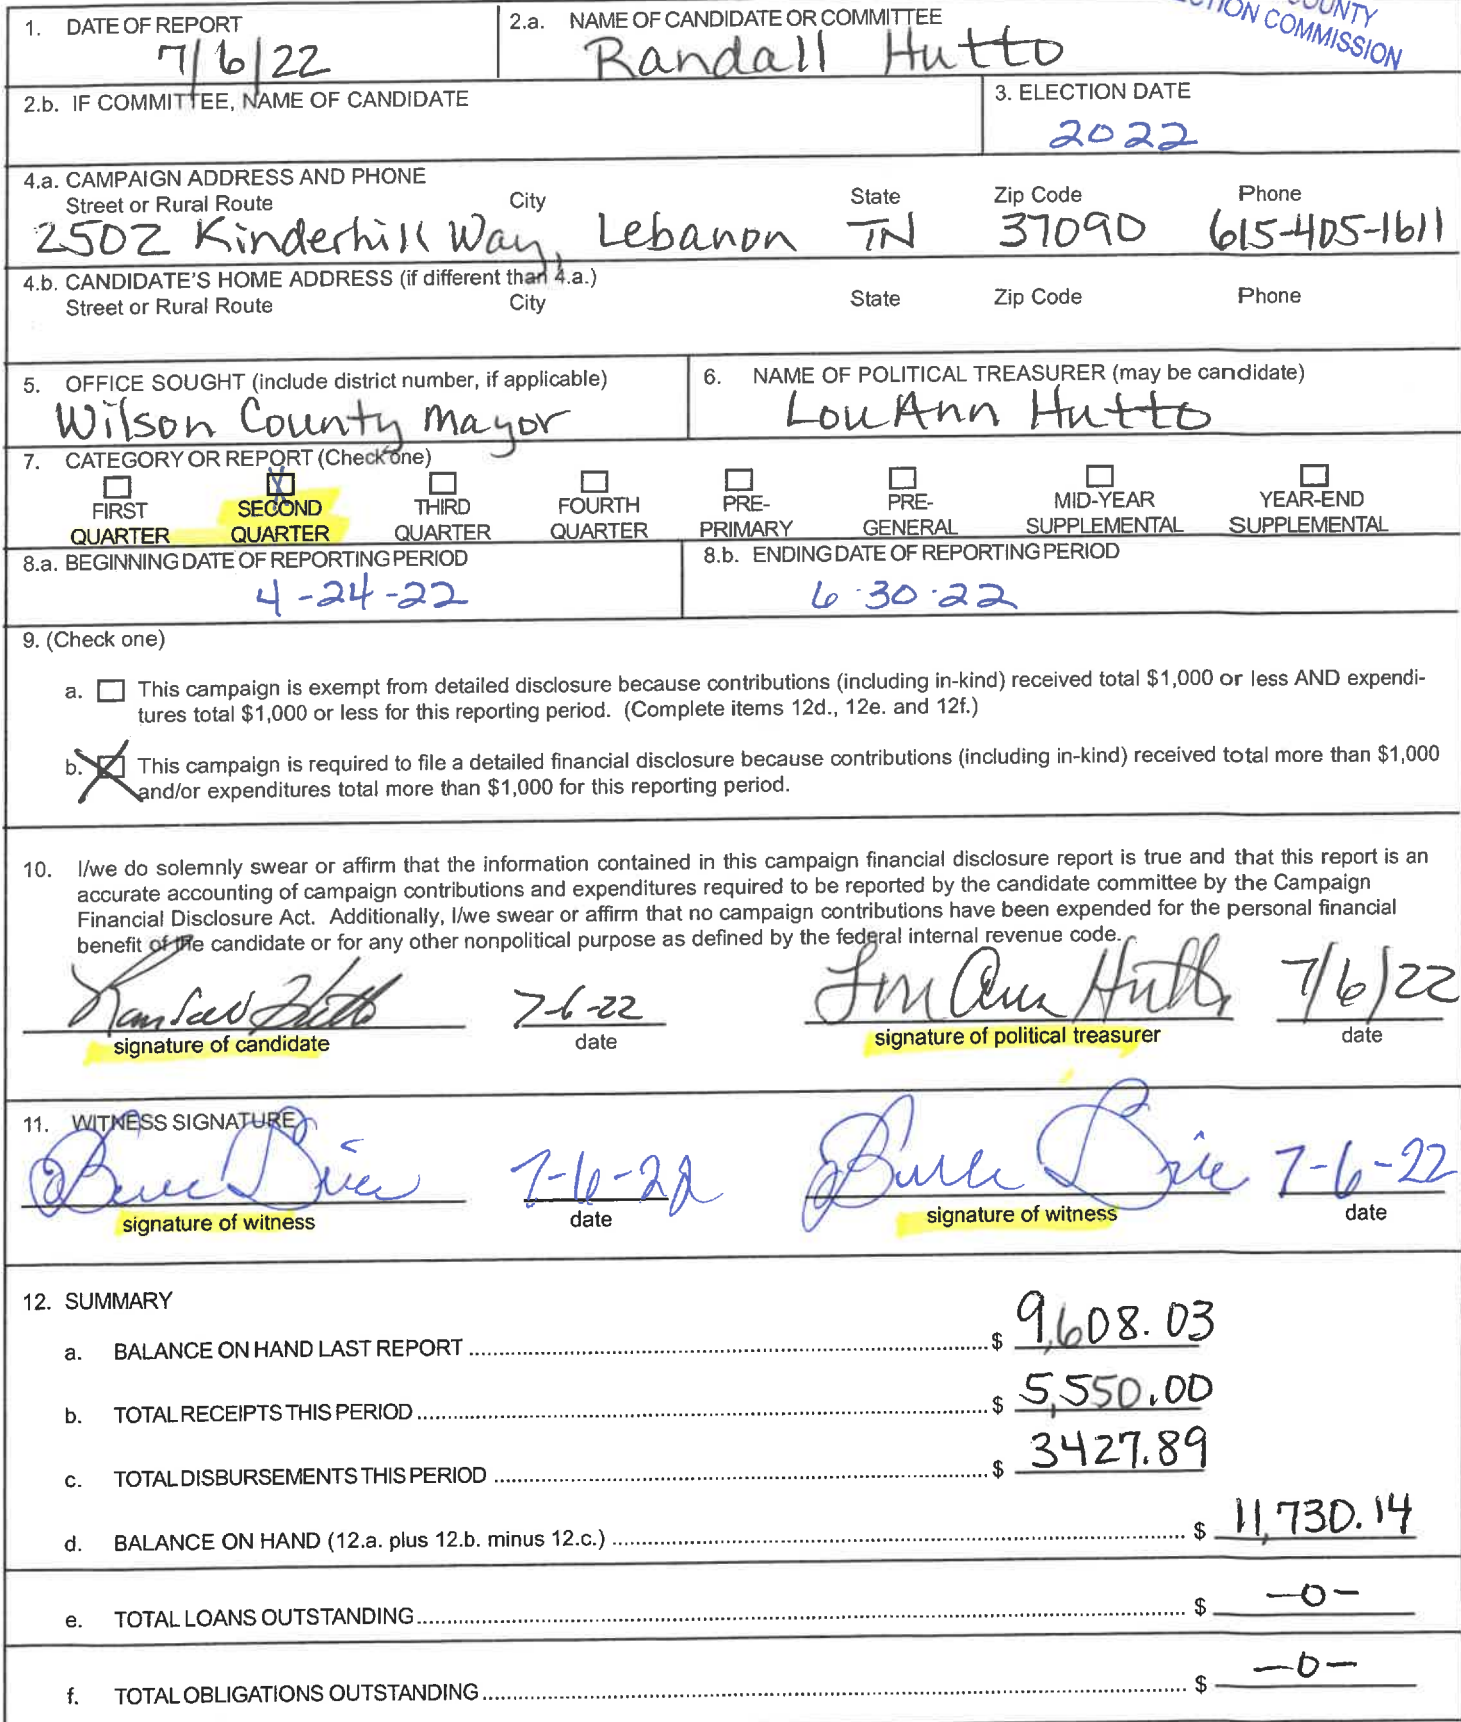 COUNTY
CTION COMMISSION
1. DATE OF REPORT
7/6/22
2.a. NAME OF CANDIDATE OR COMMITTEE
Randall Hutto
2.b. IF COMMITTEE, NAME OF CANDIDATE
3. ELECTION DATE
2022
4.a. CAMPAIGN ADDRESS AND PHONE
Street or Rural Route City State Zip Code Phone
2502 Kinderhill Way, Lebanon TN 37090 615-405-1611
4.b. CANDIDATE'S HOME ADDRESS (if different than 4.a.)
Street or Rural Route City State Zip Code Phone
5. OFFICE SOUGHT (include district number, if applicable)
Wilson County Mayor
6. NAME OF POLITICAL TREASURER (may be candidate)
LouAnn Hutto
7. CATEGORY OR REPORT (Check one)
X
FIRST QUARTER
SECOND QUARTER
THIRD QUARTER
FOURTH QUARTER
PRE-PRIMARY
PRE-GENERAL
MID-YEAR SUPPLEMENTAL
YEAR-END SUPPLEMENTAL
8.a. BEGINNING DATE OF REPORTING PERIOD
4-24-22
8.b. ENDING DATE OF REPORTING PERIOD
6-30-22
9. (Check one)
a. This campaign is exempt from detailed disclosure because contributions (including in-kind) received total $1,000 or less AND expendi-
tures total $1,000 or less for this reporting period. (Complete items 12d., 12e. and 12f.)
b. X This campaign is required to file a detailed financial disclosure because contributions (including in-kind) received total more than $1,000
and/or expenditures total more than $1,000 for this reporting period.
10. I/we do solemnly swear or affirm that the information contained in this campaign financial disclosure report is true and that this report is an
accurate accounting of campaign contributions and expenditures required to be reported by the candidate committee by the Campaign
Financial Disclosure Act. Additionally, I/we swear or affirm that no campaign contributions have been expended for the personal financial
benefit of the candidate or for any other nonpolitical purpose as defined by the federal internal revenue code.
Randall Hutto 7-6-22 Lou Ann Hutto 7/6/22
signature of candidate date signature of political treasurer date
11. WITNESS SIGNATURE
7-6-22 7-6-22
signature of witness date signature of witness date
12. SUMMARY
a. BALANCE ON HAND LAST REPORT $ 9,608.03
b. TOTAL RECEIPTS THIS PERIOD $ 5,550.00
c. TOTAL DISBURSEMENTS THIS PERIOD $ 3427.89
d. BALANCE ON HAND (12.a. plus 12.b. minus 12.c.) $ 11,730.14
e. TOTAL LOANS OUTSTANDING $ -0-
f. TOTAL OBLIGATIONS OUTSTANDING $ -0-